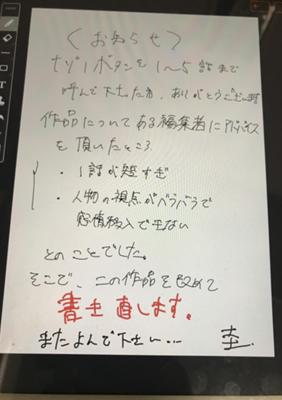 〈お知らせ〉
ナゾノボタンを1〜5話まで
呼んで下さた方、ありがとうございます
作品についてある編集者にアドバイス
を頂いたところ
・1話が短すぎ
・人物の視点がバラバラで
感情移入できない
とのことでした。
そこで、この作品を改めて
書き直します。
またよんで下さい…